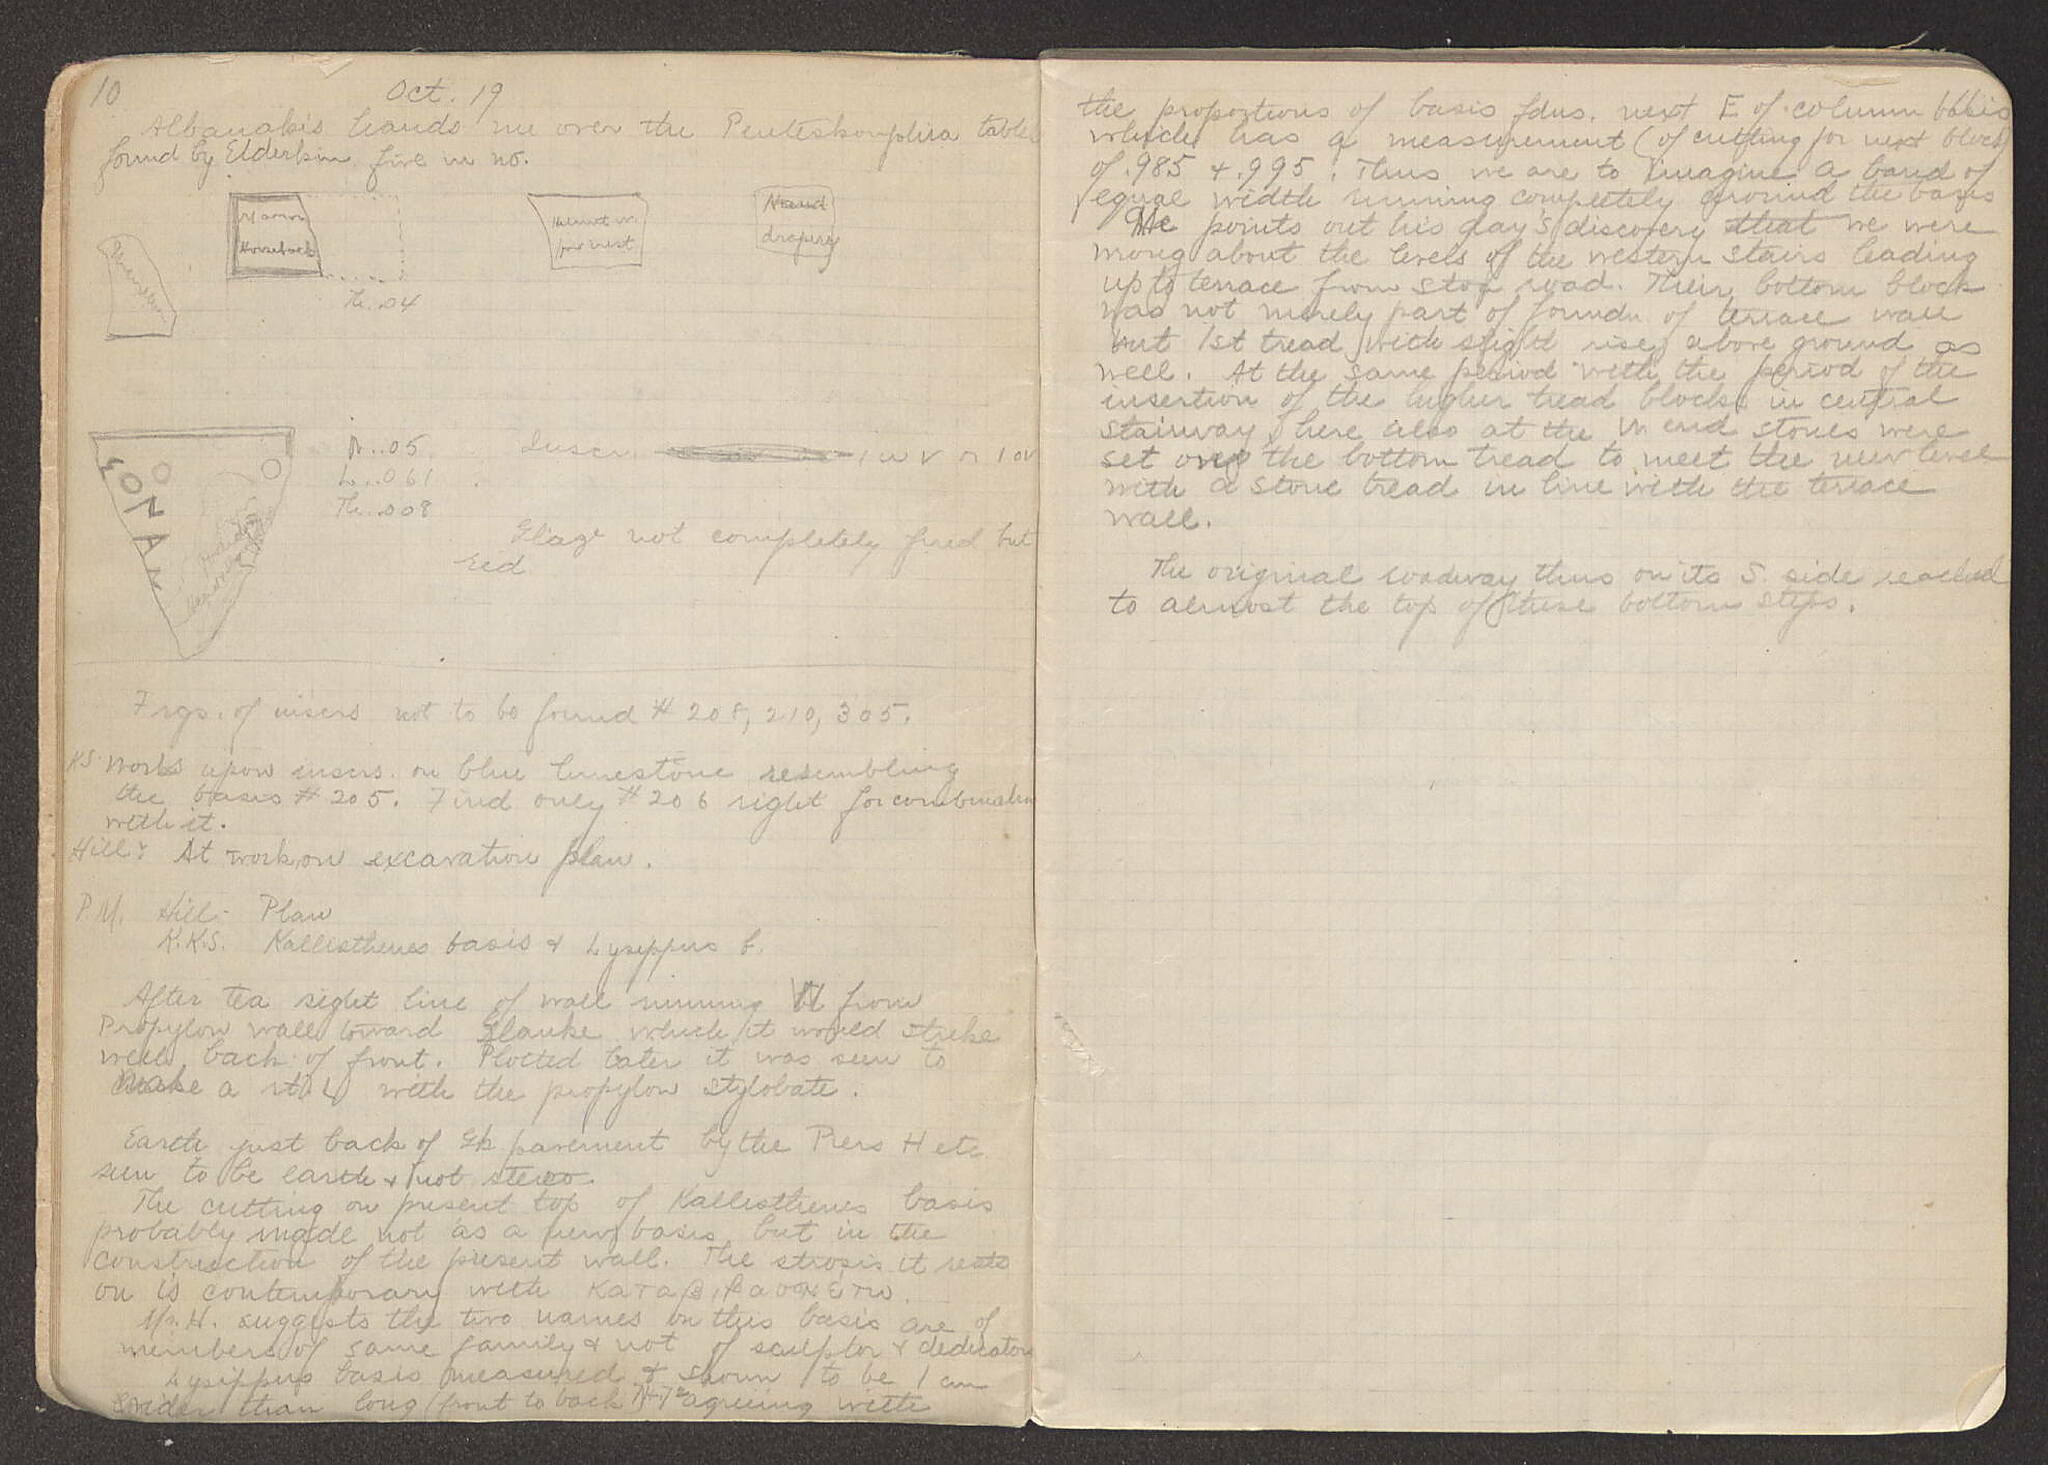 10
Oct. 19
Albanakis hands me over the Penteskouphia tablets
found by Elderkin, five in no.
Man on
Horseback
Th. .04
drapery
H. .05
L. .061
Th. .008
Inscr.
Glaze not completely fired but
red
Frgs. of inscrs not to be found # 208, 210, 305.
KS. Works upon inscrs. on blue limestone resembling
the basis # 205. Find only # 206 right for combination
with it.
Hill: At work on excavation plan.
P.M. Hill - Plan
K.K.S. Kallisthenes basis & Lysippus b.
After tea sight line of wall running W from
Propylon wall toward Glauke which it would strike
well back of front. Plotted later it was seen to
make a rt ∟ with the propylon stylobate.
Earth just back of Gk pavement by the Piers H etc
seen to be earth & not stereo.
The cutting on present top of Kallisthenes basis
probably made not as a new basis but in the
construction of the present wall. The strosis it rests
on is contemporary with
Mr. H. suggests the two names on this basis are of
members of same family & not of sculptor & dedicator
Lysippus basis measured & shown to be 1 cm
wider than long (front to back) agreeing with
the proportions of basis fdns. next E of column basis
which has a measurement (of cutting for next block)
of .985 + .995. Thus we are to imagine a band of
equal width running completely around the basis
He points out his day's discovery that we were
wrong about the levels of the western stairs leading
up to terrace from stoa road. Their bottom block
was not merely part of foundn of terrace wall
but 1st tread with slight rise above ground as
well. At the same period with the period of the
insertion of the higher tread blocks in central
stairway, here also at the W end stones were
set over the bottom tread to meet the new level
with a stone tread in line with the terrace
wall.
The original roadway thus on its S. side reached
to almost the top of these bottom steps.